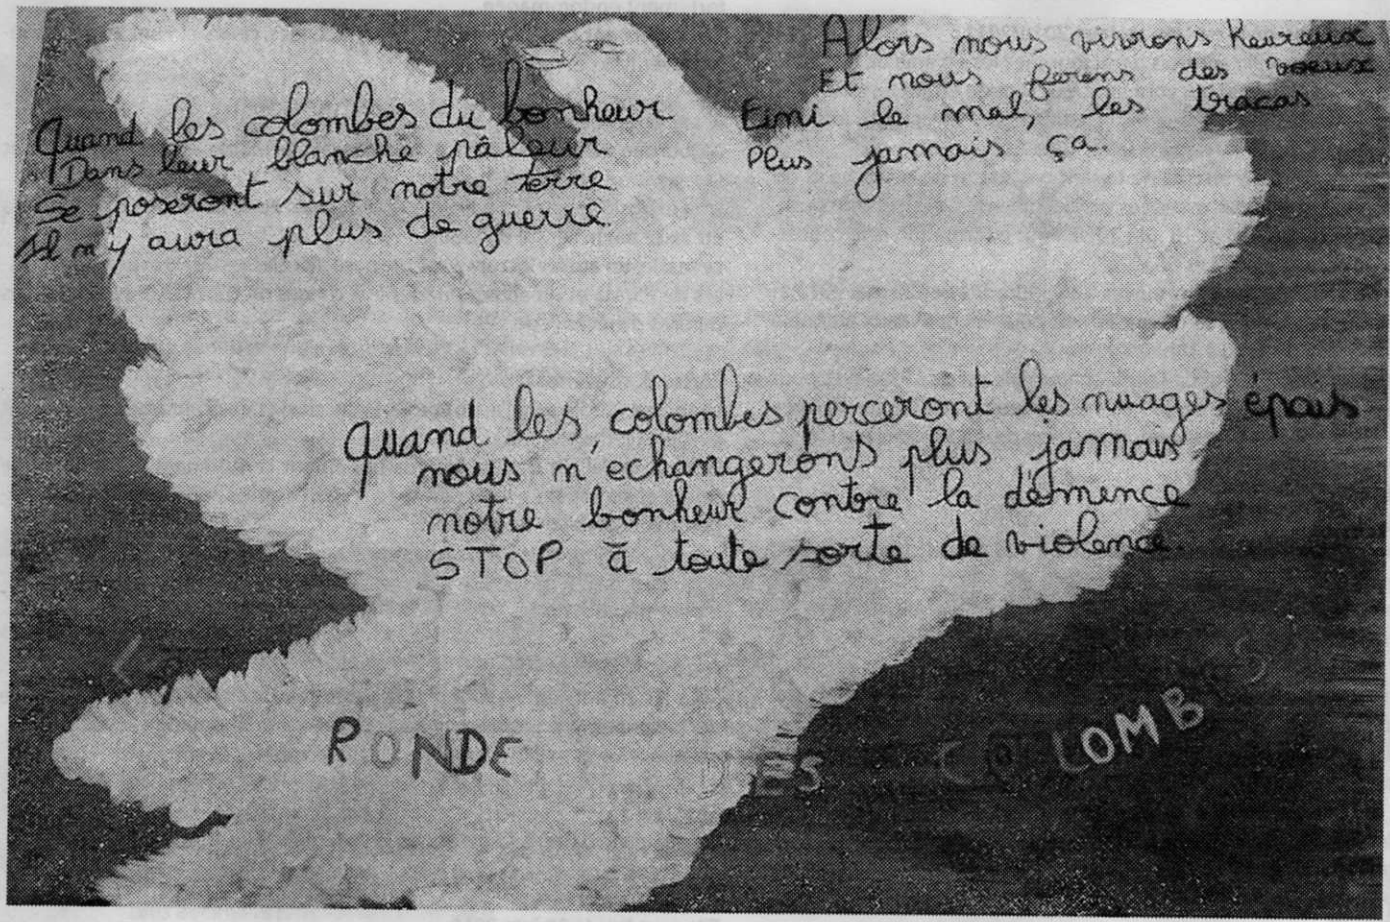 Quand les colombes du bonheur
Dans leur blanche pâleur
Se poseront sur notre terre
Il n'y aura plus de guerre.
Alors nous vivrons heureux
Et nous ferons des voeux
Fini le mal, les tracas
Plus jamais ça.
Quand les colombes perceront les nuages épais
nous n'echangerons plus jamais
notre bonheur contre la démence
STOP à toute sorte de violence.
RONDE DES COLOMBES